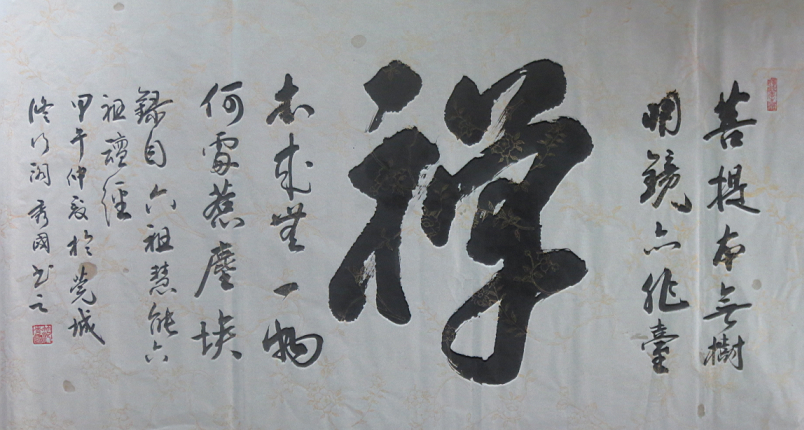 菩提本無樹
明鏡亦非臺
禪
本來無一物
何處惹塵埃
錄自六祖慧能六
祖壇經
甲午仲夏於莞城
秀國書之